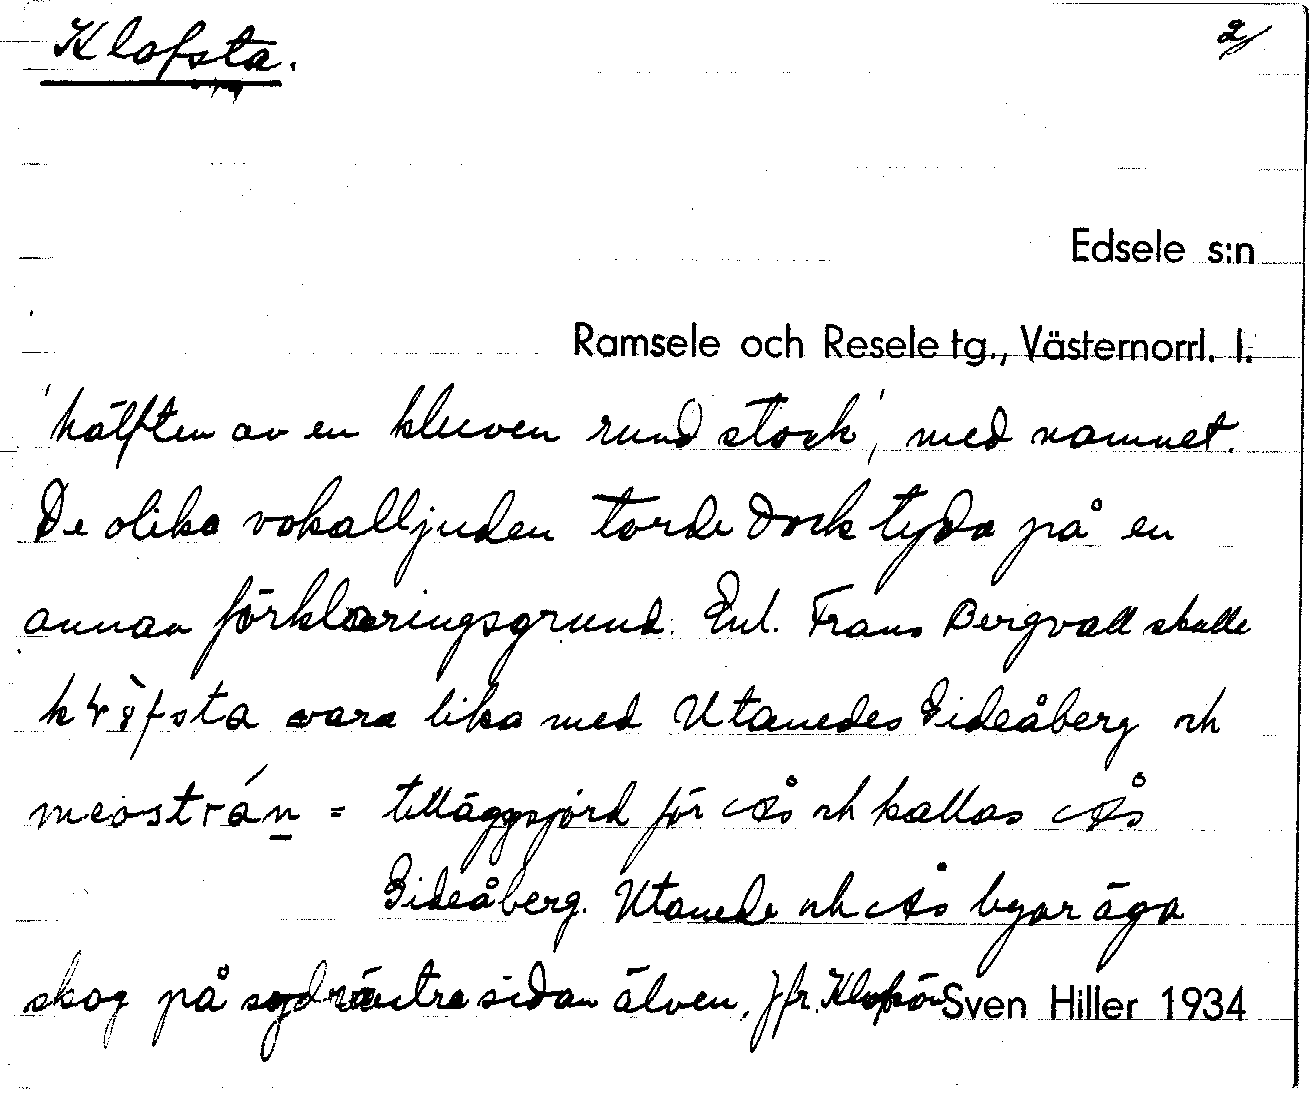 Klofsta.
2/
Edsele s:n
Ramsele och Resele tg., Västernorrl. l.
'hälften av en kluven rund stock', med namnet.
De olika vokalljuden torde dock tyda på en
annan förklaringsgrund. Enl. Frans Bergvall skulle
vara lika med Utanedes Gideåberg och
= tilläggsjord för Ås och kallas Ås
Gideåberg. Utanede och Ås byar äga
skog på sydvästra sidan älven. Jfr.
Sven Hiller 1934